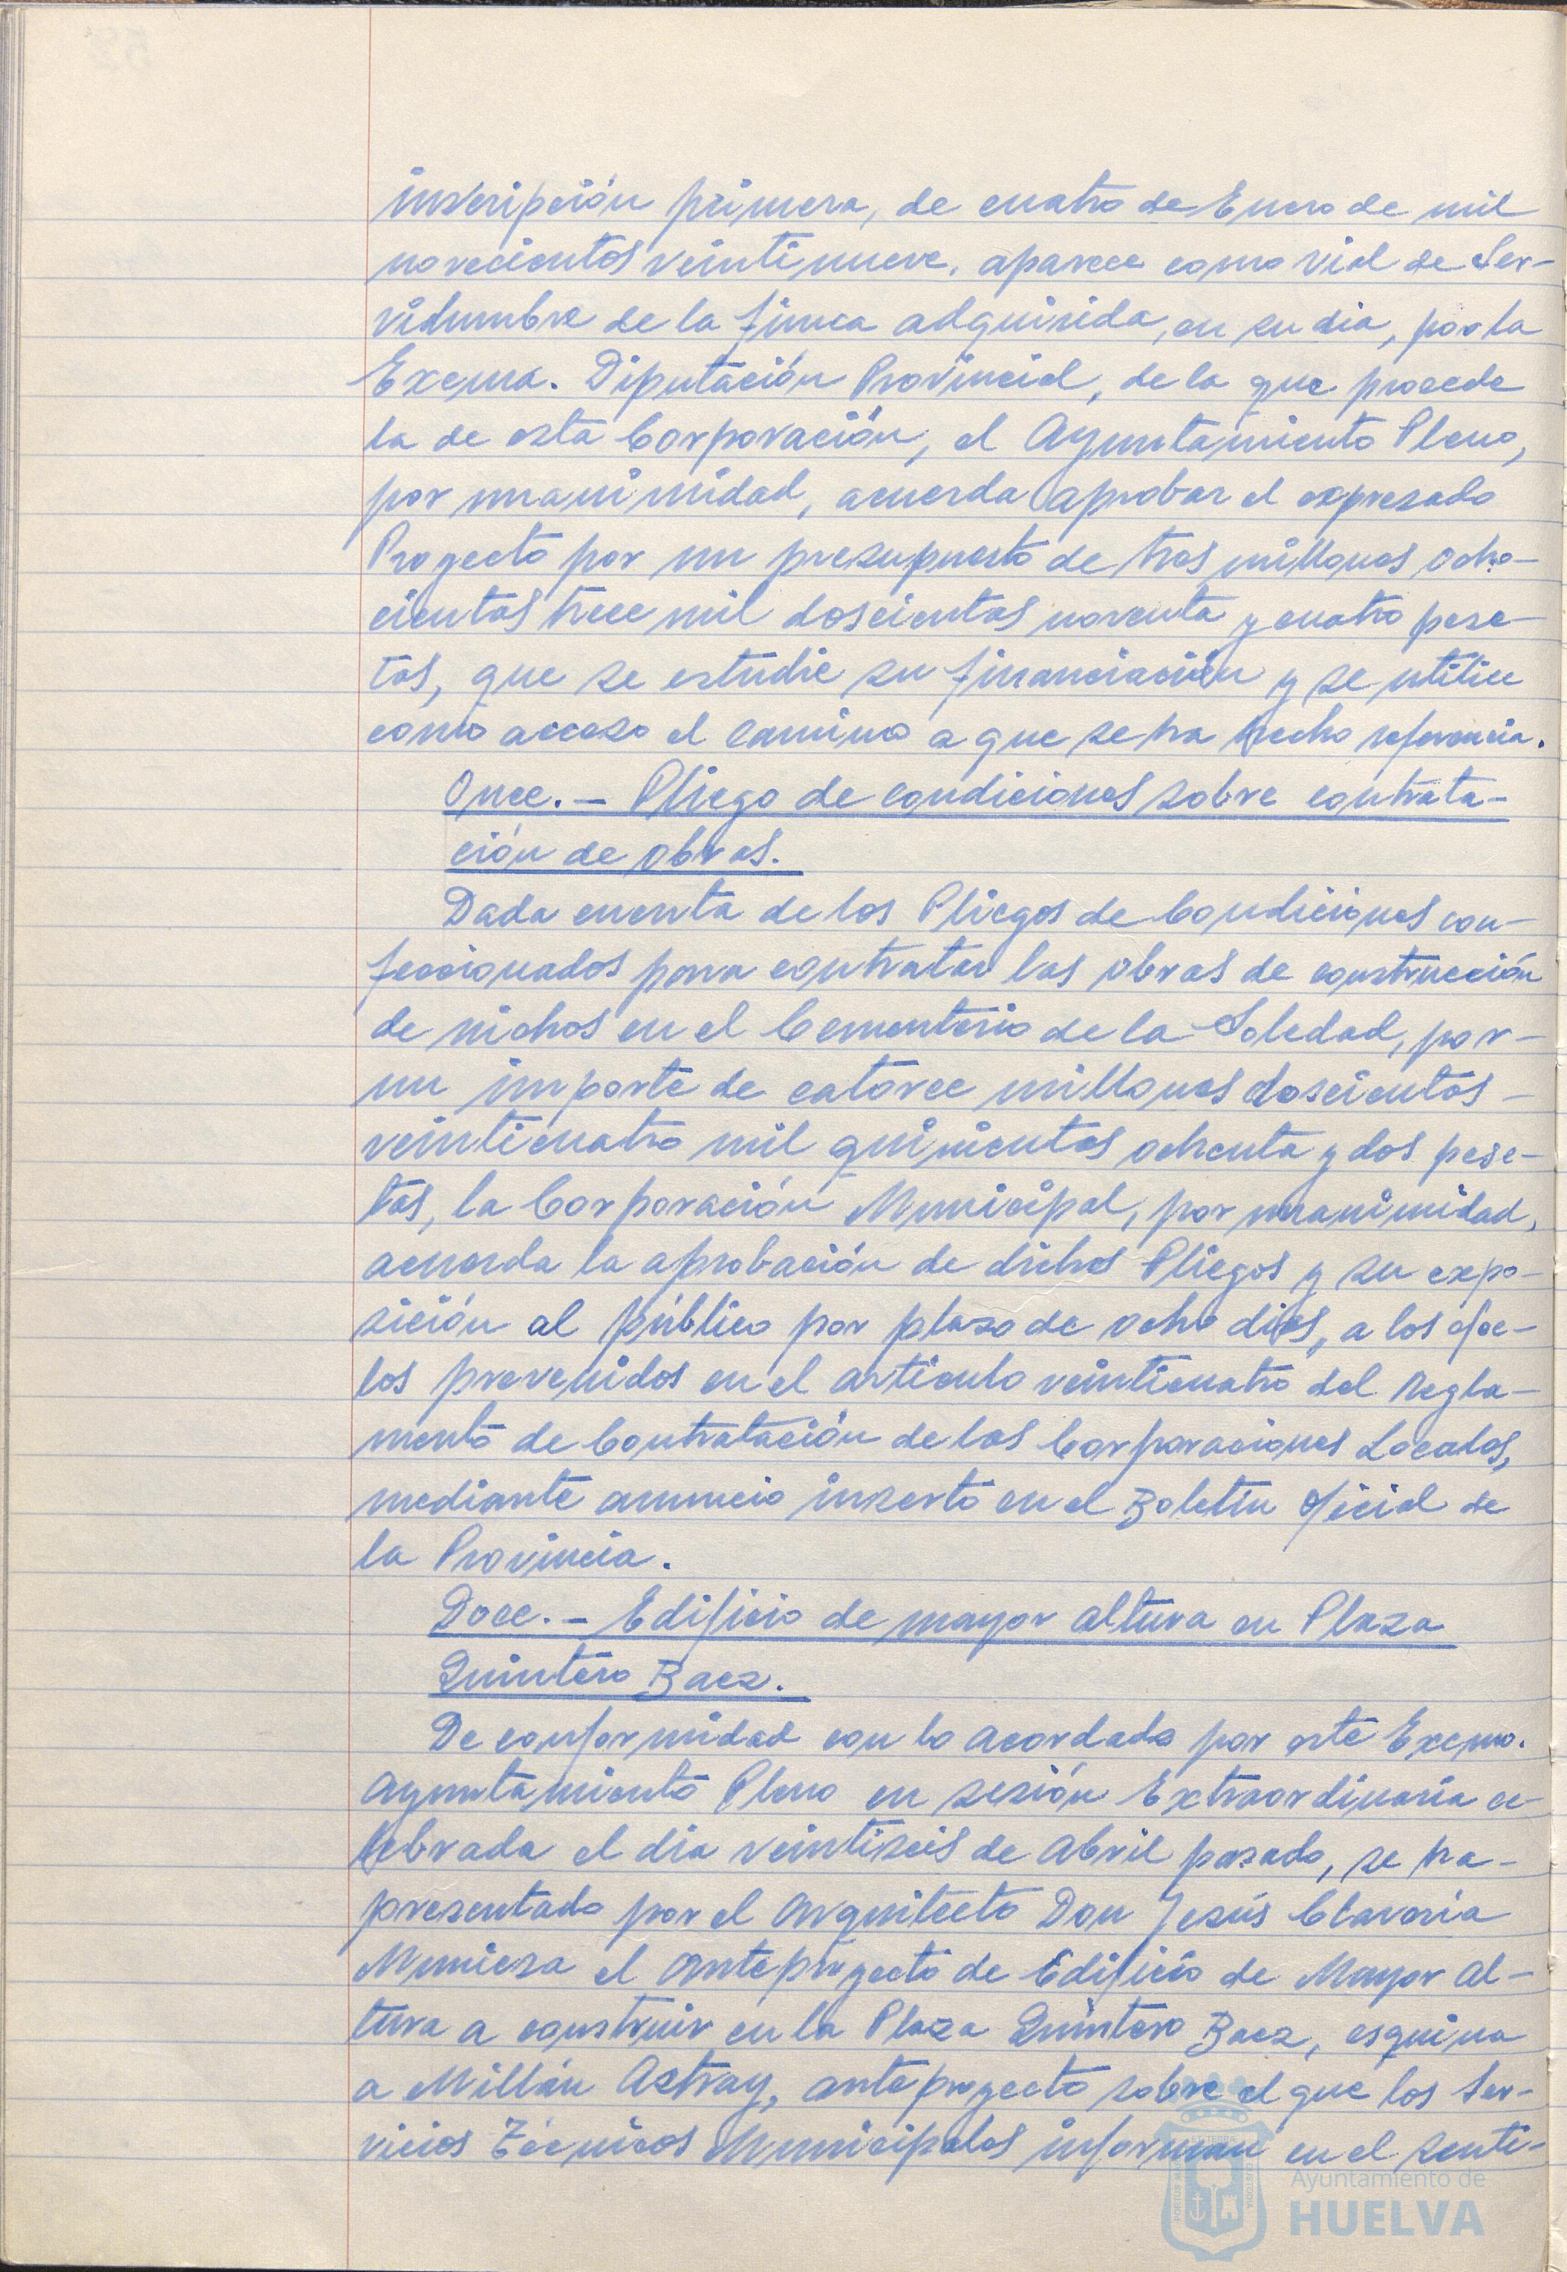 inscripción primera, de cuatro de Enero de mil
novecientos veintinueve, aparece como vial de Ser-
vidumbre de la finca adquirida, en su dia, por la
Excma. Diputación Provincial, de la que procede
la de esta Corporación, el Ayuntamiento Pleno,
por unanimidad, acuerda aprobar el expresado
Proyecto por un presupuesto de tres millones ocho-
cientas trece mil doscientas noventa y cuatro pese-
tas, que se estudie su financiación y se utilice
como acceso el camino a que se ha hecho referencia.
Once.- Pliego de condiciones sobre contrata-
ción de obras.
Dada cuenta de los Pliegos de Condiciones con-
feccionados para contratar las obras de construcción
de nichos en el Cementerio de la Soledad, por-
un importe de catorce millones doscientas -
veinticuatro mil quinientas ochenta y dos pese-
tas, la Corporación Municipal, por unanimidad,
acuerda la aprobación de dichos Pliegos y su expo-
sición al público por plazo de ocho dias, a los efec-
tos prevenidos en el articulo veinticuatro del Regla-
mento de Contratación de las Corporaciones Locales,
mediante anuncio inserto en el Boletin Oficial de
la Provincia.
Doce.- Edificio de mayor altura en Plaza
Quintero Baez.
De conformidad con lo acordado por este Excmo.
Ayuntamiento Pleno en sesión Extraordinaria ce-
lebrada el dia veintiseis de Abril pasado, se ha-
presentado por el Arquitecto Don Jesús Clavería
Muniesa el Anteproyecto de Edificio de Mayor Al-
tura a construir en la Plaza Quintero Baez, esquina
a Millán Astray, anteproyecto sobre el que los Ser-
vicios Técnicos Municipales informan en el senti-
Ayuntamiento de
HUELVA